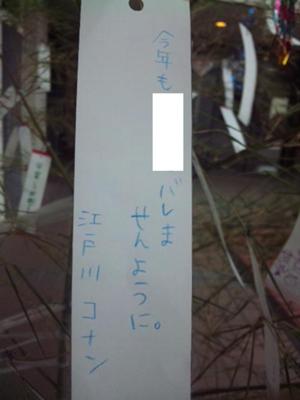 今年も バレま
せんように。
江戸川 コナン